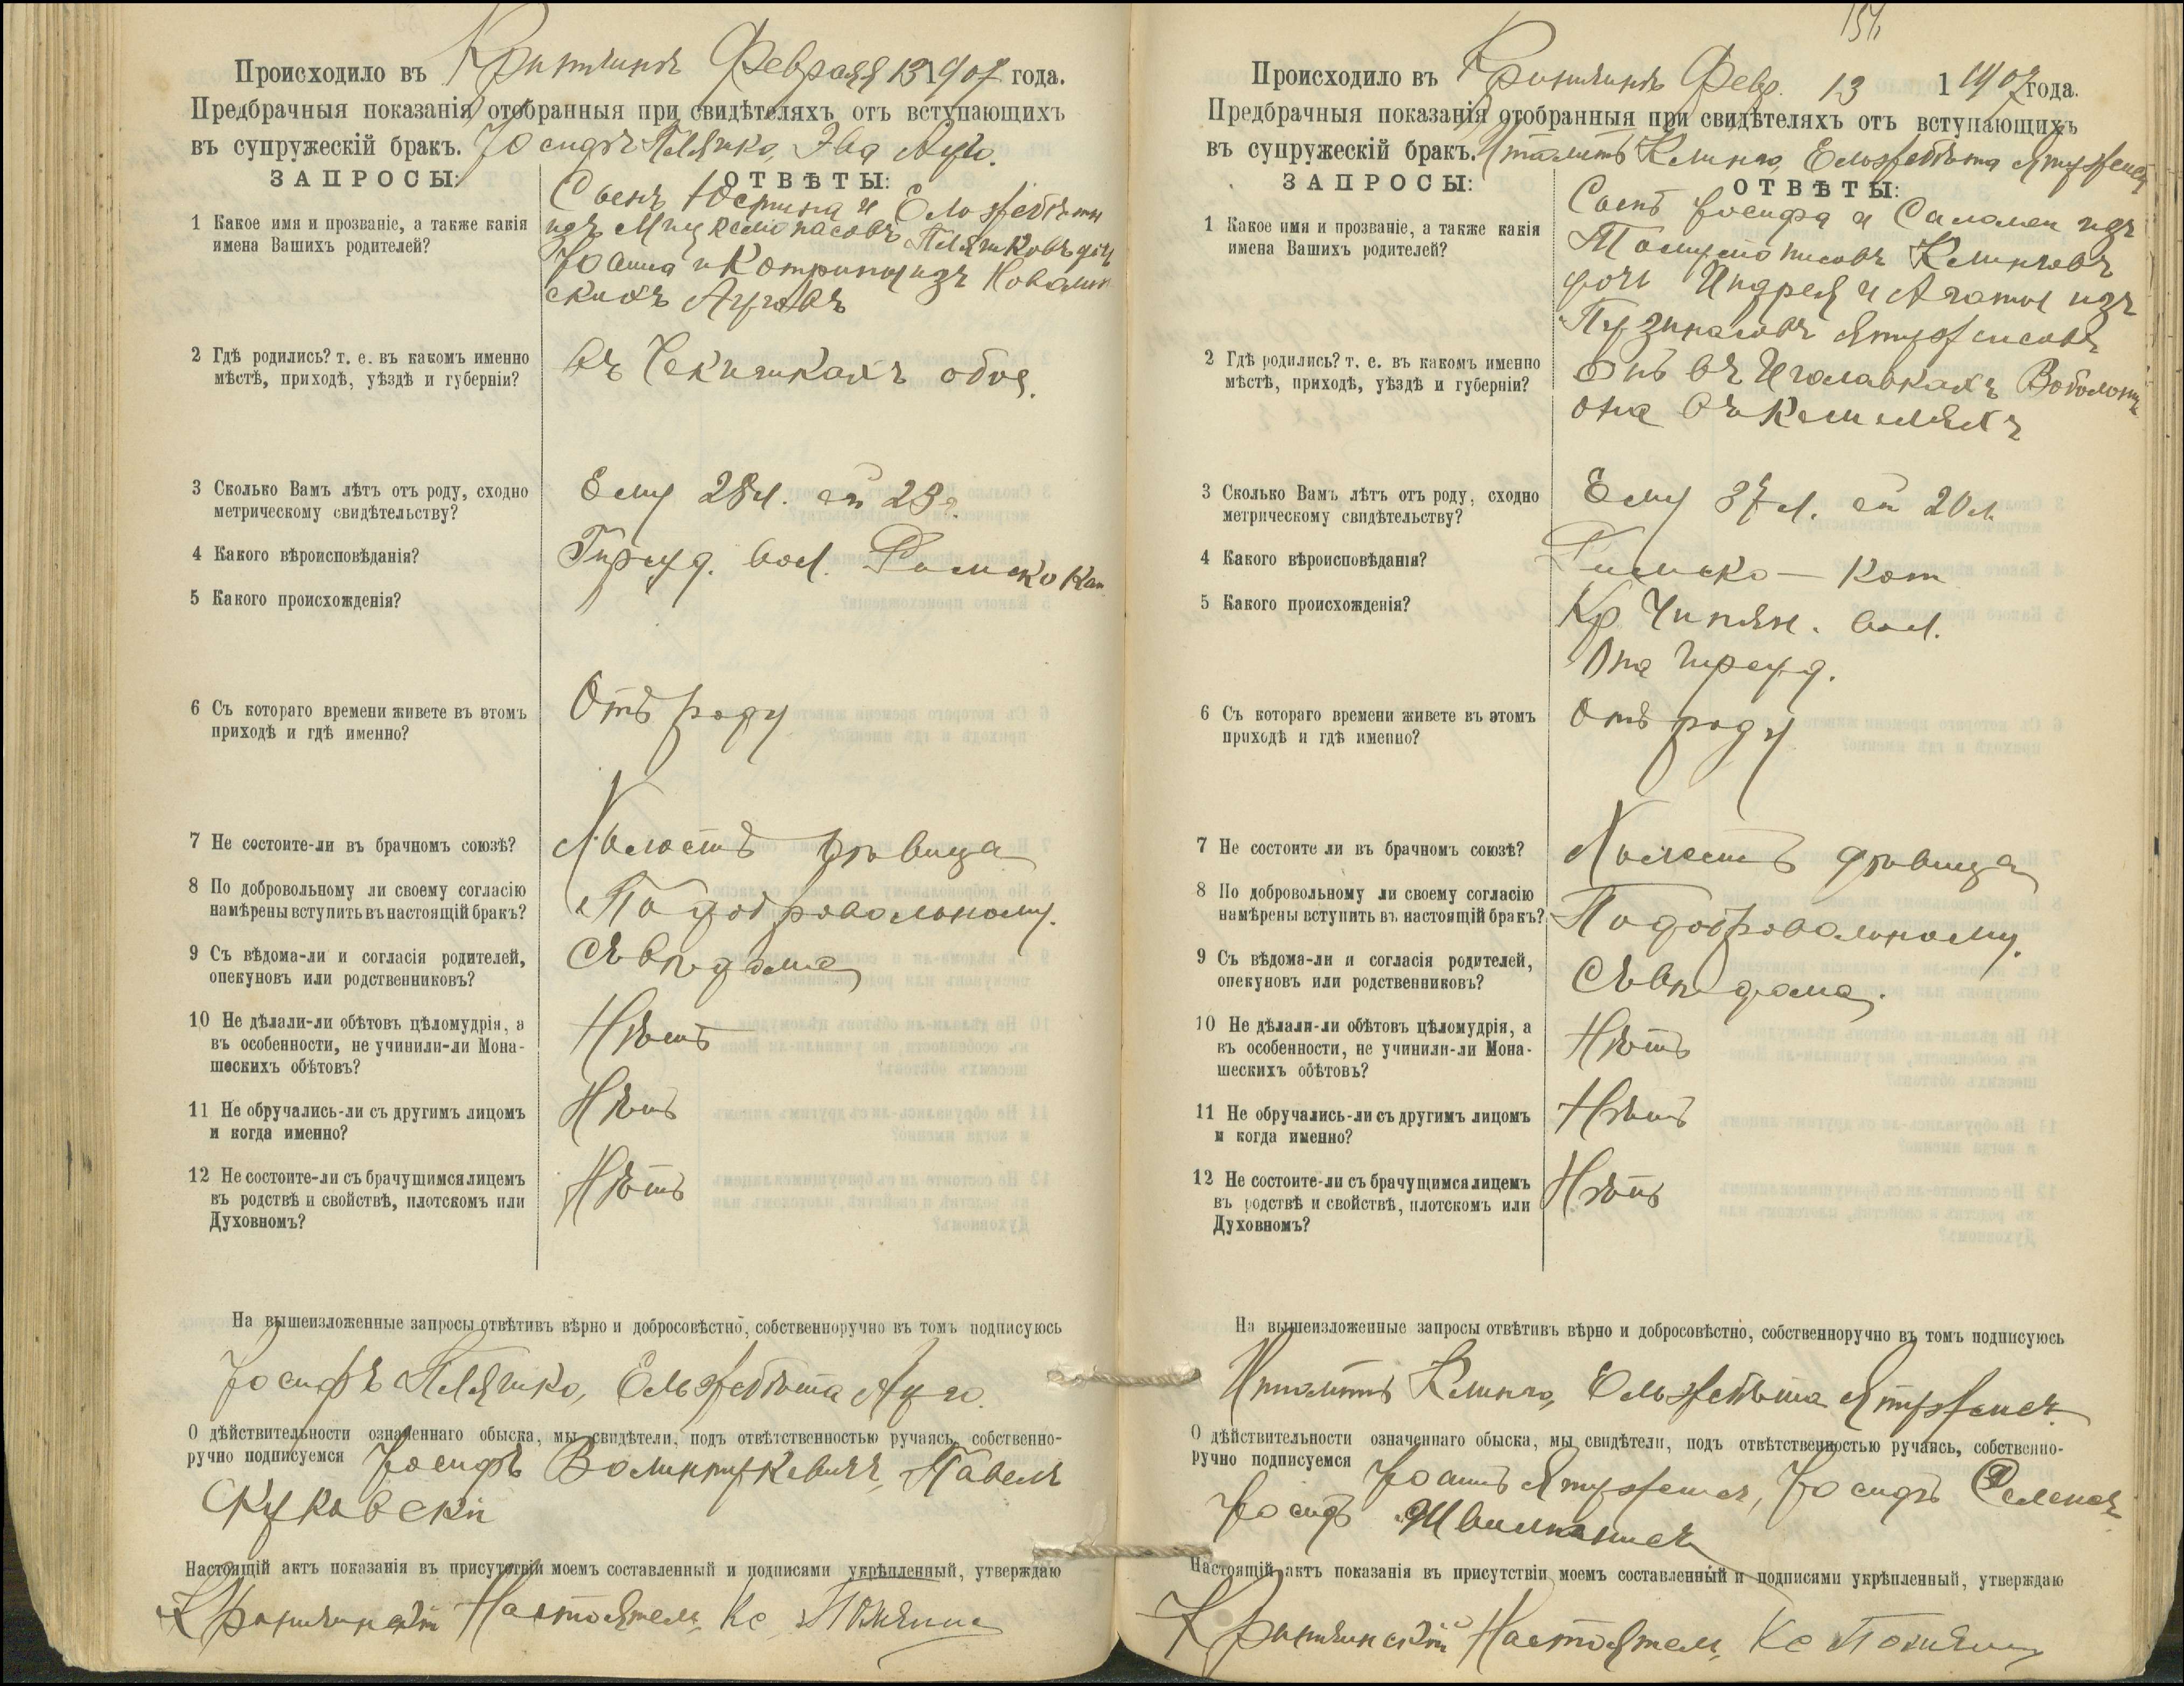 Происходило въ Февраля 13 1907 года.
Предбрачныя показанія отобранныя при свидѣтеляхъ отъ вступающихъ
въ супружескій бракъ. Іосифъ Пляшко, Эва
ЗАПРОСЫ:
ОТВѢТЫ:
1 Какое имя и прозваніе, а также какія
имена Вашихъ родителей?
Сынъ Юстина и Ельжбѣты
изъ Пляшковъ дочь
Іоанна и Катрины изъ
скихъ
2 Гдѣ родились? т. е. въ какомъ именно
мѣстѣ, приходѣ, уѣздѣ и губерніи?
въ Чекишкахъ обоя.
3 Сколько Вамъ лѣтъ отъ роду, сходно
метрическому свидѣтельству?
Ему 28 л. ей 23
4 Какого вѣроисповѣданія?
вол. Римско Кат
5 Какого происхожденія?
6 Съ котораго времени живете въ этомъ
приходѣ и гдѣ именно?
Отъ роду
7 Не состоите-ли въ брачномъ союзѣ?
Холостъ дѣвица
8 По добровольному ли своему согласію
намѣрены вступить въ настоящій бракъ?
По добровольному.
9 Съ вѣдома-ли и согласія родителей,
опекуновъ или родственниковъ?
Съ вѣдома
10 Не дѣлали-ли обѣтовъ цѣломудрія, а
въ особенности, не учинили-ли Мона-
шескихъ обѣтовъ?
Нѣтъ
11 Не обручались-ли съ другимъ лицомъ
и когда именно?
Нѣтъ
12 Не состоите-ли съ брачущимся лицемъ
въ родствѣ и свойствѣ, плотскомъ или
Духовномъ?
Нѣтъ
На вышеизложенные запросы отвѣтивъ вѣрно и добросовѣстно, собственноручно въ томъ подписуюсь
Іосифъ Пляшко, Ельжбѣта
О дѣйствительности означеннаго обыска, мы свидѣтели, подъ отвѣтственностью ручаясь, собственно-
ручно подписуемся Іосифъ Павелъ
Настоящій актъ показанія въ присутствіи моемъ составленный и подписями укрѣпленный, утверждаю
Настоятель Кс
Происходило въ Февр. 13 1 1907 года.
Предбрачныя показанія отобранныя при свидѣтеляхъ отъ вступающихъ
въ супружескій бракъ. Ельжбѣта
ЗАПРОСЫ:
ОТВѢТЫ:
1 Какое имя и прозваніе, а также какія
имена Вашихъ родителей?
Сынъ Іосифа и Саломеи изъ
дочь Андрея и Агаты изъ
2 Гдѣ родились? т. е. въ какомъ именно
мѣстѣ, приходѣ, уѣздѣ и губерніи?
Онъ въ
она въ
3 Сколько Вамъ лѣтъ отъ роду, сходно
метрическому свидѣтельству?
Ему 37 л. ей 20 л.
4 Какого вѣроисповѣданія?
Римско - Кат
5 Какого происхожденія?
Кр вол.
Она
6 Съ котораго времени живете въ этомъ
приходѣ и гдѣ именно?
Отъ роду
7 Не состоите ли въ брачномъ союзѣ?
Холостъ дѣвица
8 По добровольному ли своему согласію
намѣрены вступить въ настоящій бракъ?
По добровольному.
9 Съ вѣдома-ли и согласія родителей,
опекуновъ или родственниковъ?
Съ вѣдома.
10 Не дѣлали-ли обѣтовъ цѣломудрія, а
въ особенности, не учинили-ли Мона-
шескихъ обѣтовъ?
Нѣтъ
11 Не обручались-ли съ другимъ лицомъ
и когда именно?
Нѣтъ
12 Не состоите-ли съ брачущимся лицемъ
въ родствѣ и свойствѣ, плотскомъ или
Духовномъ?
Нѣтъ
На вышеизложенные запросы отвѣтивъ вѣрно и добросовѣстно, собственноручно въ томъ подписуюсь
Ельжбѣта
О дѣйствительности означеннаго обыска, мы свидѣтели, подъ отвѣтственностью ручаясь, собственно-
ручно подписуемся Іосифъ
Іосифъ
Настоящій актъ показанія въ присутствіи моемъ составленный и подписями укрѣпленный, утверждаю
Настоятель Кс